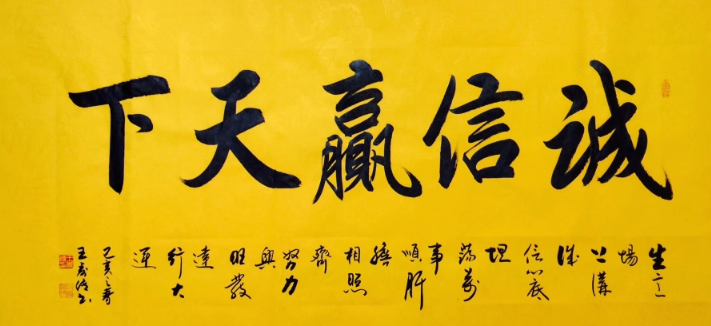 誠信贏天下
生意
場
上講
誠
信心底
坦
蕩萬
事
順肝
膽
相照
齊
努力
興
旺發
達
行大
運
己亥之春
王